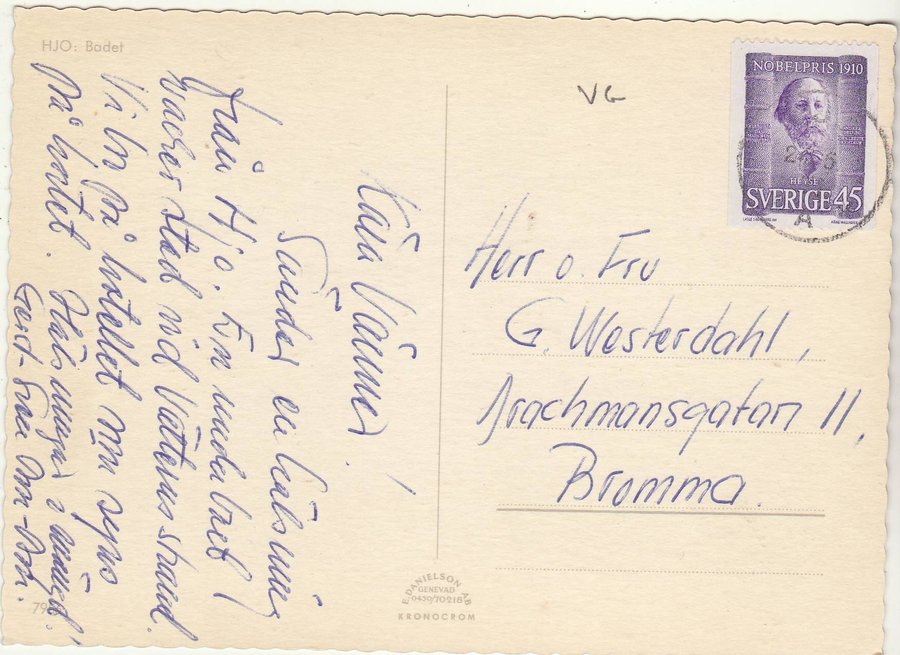 HJO: Badet
Kära Vänner!
Sänder en hälsning
från Hjo. En underbart
vacker stad vid Vätterns strand.
Vi bo på hotellet som synes
på kortet. Hälsningar i mängd!
Gerd
VG
NOBELPRIS 1910
HEYSE
SVERIGE 45
A
Herr o. Fru
G. Westerdahl,
Drachmansgatan 11,
Bromma.
E. DANIELSON AB
GENEVAD
0430/70218
KRONOCROM